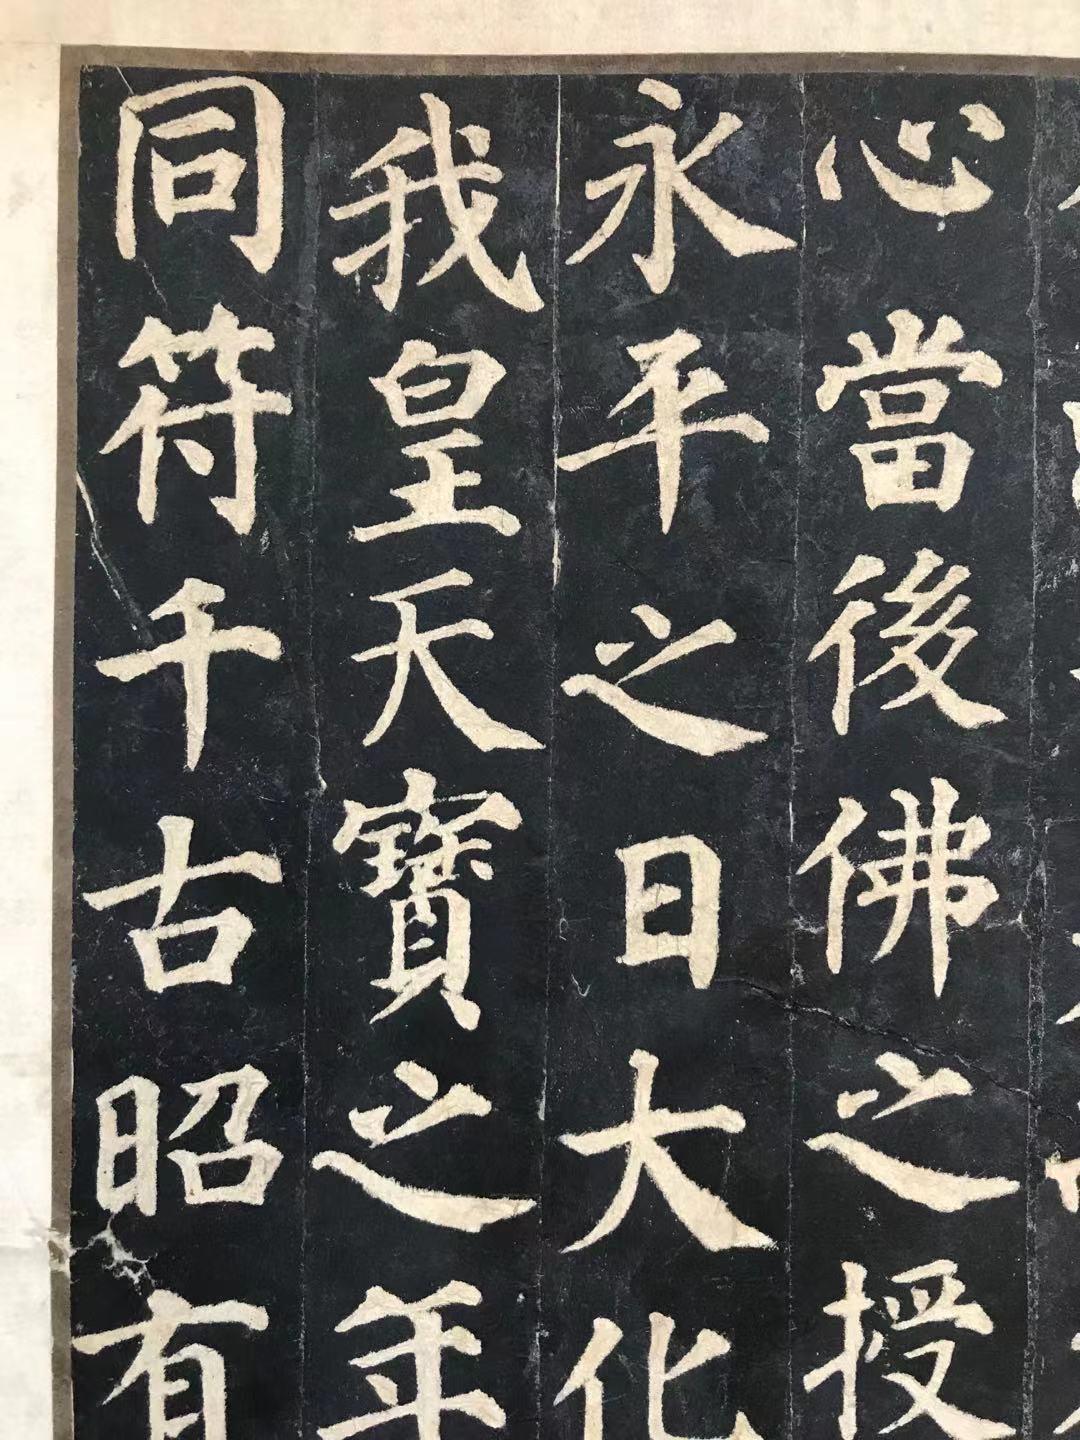 心當後佛之授
永平之日大化
我皇天寶之年
同符千古昭有